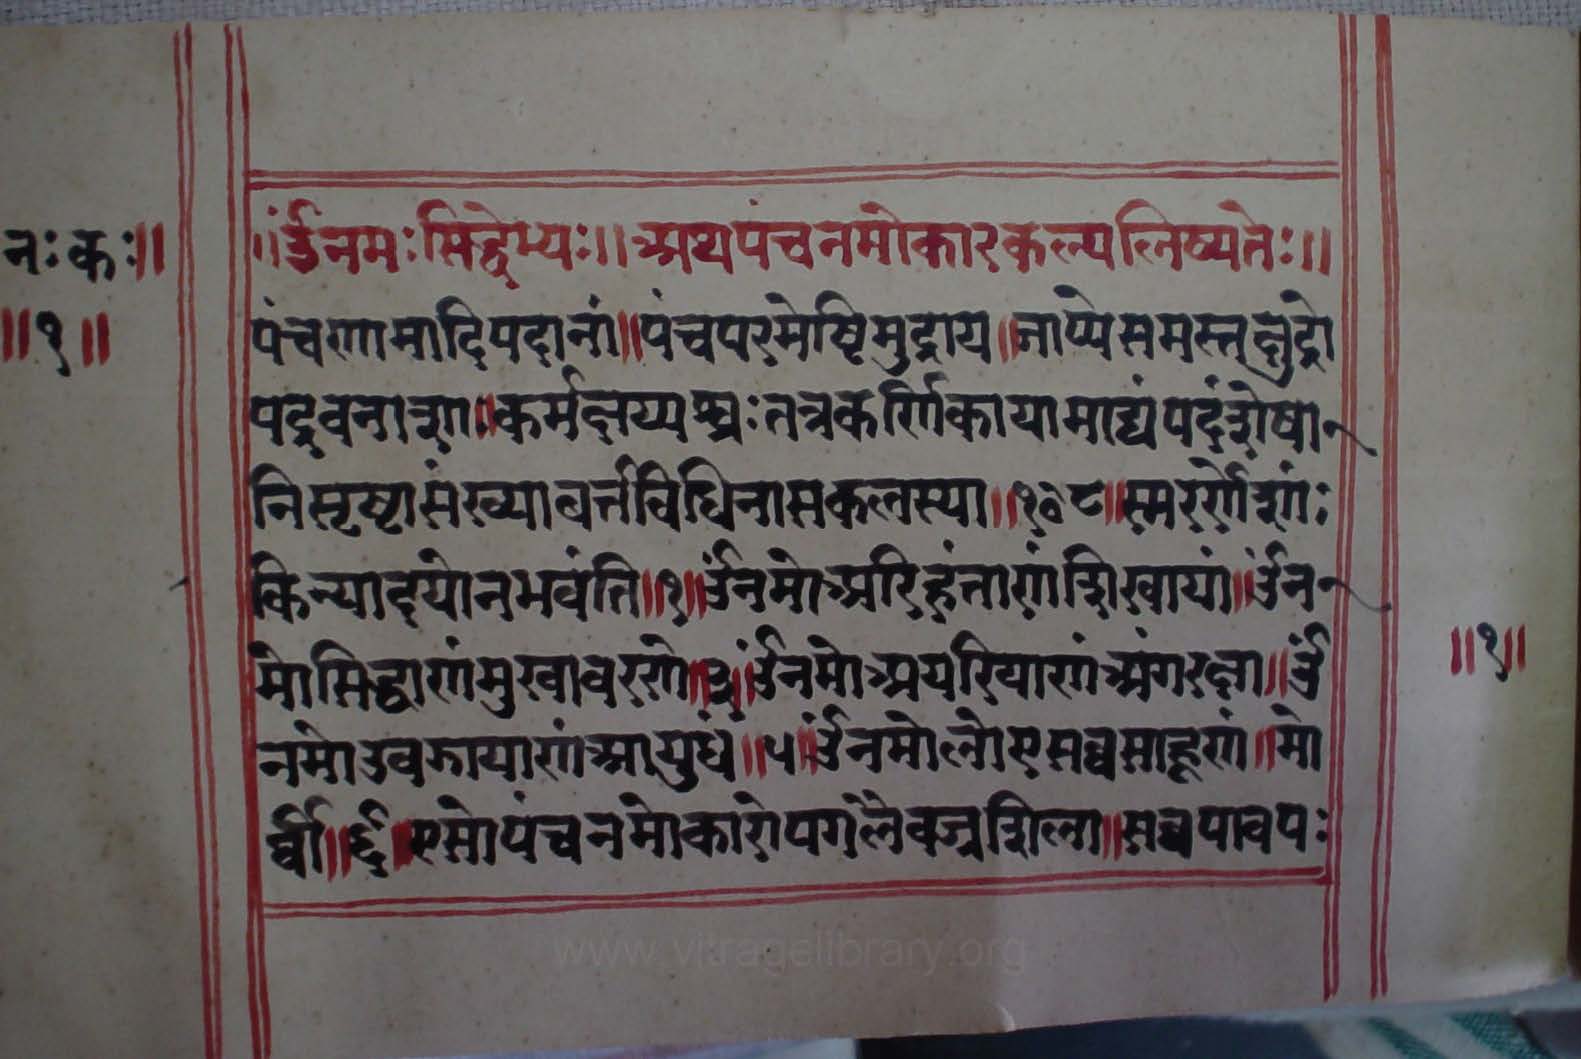 नः कः॥
॥१॥
॥ॐनमःसिद्धेभ्यः॥अथपंचनमोकारकल्पलिख्यतेः॥
पंचणामादिपदानां॥पंचपरमेष्ठिमुद्राय॥जाप्येसमस्तक्षुद्रो
पद्रवनाशः॥कर्मक्षय्यश्चःतत्रकर्णिकायामाद्यंपदंशेषा
निसृष्ट्यासंख्यावर्त्तविधिनासकलस्या॥१०८॥स्मरणेशां
किन्यादयोनभवंति॥१॥ॐनमोअरिहंताणंशिखायां॥ॐन
मोसिद्धाणंमुखावरणे॥३॥ॐनमोअयरियाणंअंगरक्षा॥ॐ
नमोउवझायाणंआयुधं॥५॥ॐनमोलोएसव्वसाहूणं॥मो
र्वी॥६॥एसोपंचनमोकारोपगलैवज्रशिला॥सव्वपावपः
॥१॥
www.vitragelibrary.org